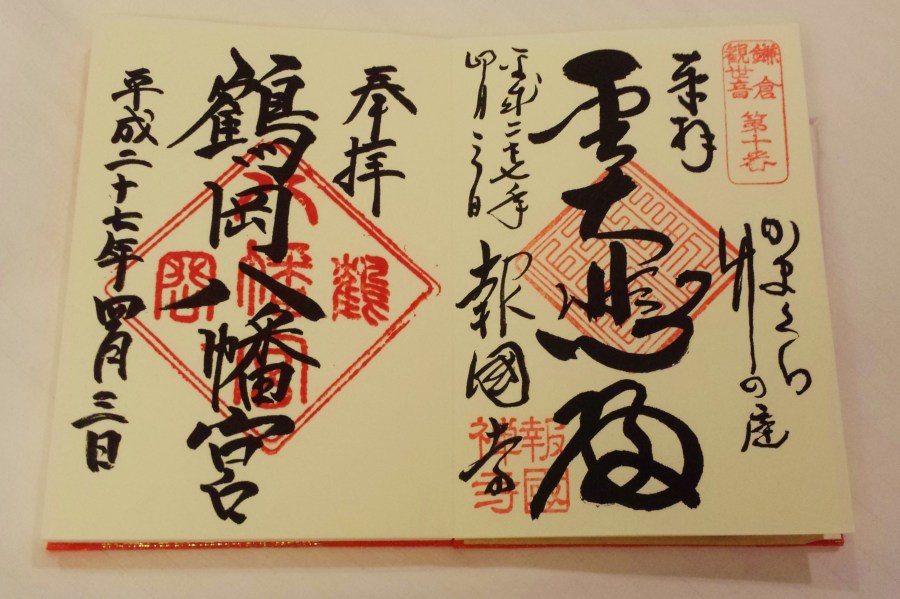 鎌倉
観世音
第十番
かまくら
竹の庭
奉拝
大悲殿
平成二十七年
四月三日
報國寺
報國
禅寺
奉拝
鶴岡八幡宮
鶴岡八幡宮
平成二十七年四月三日